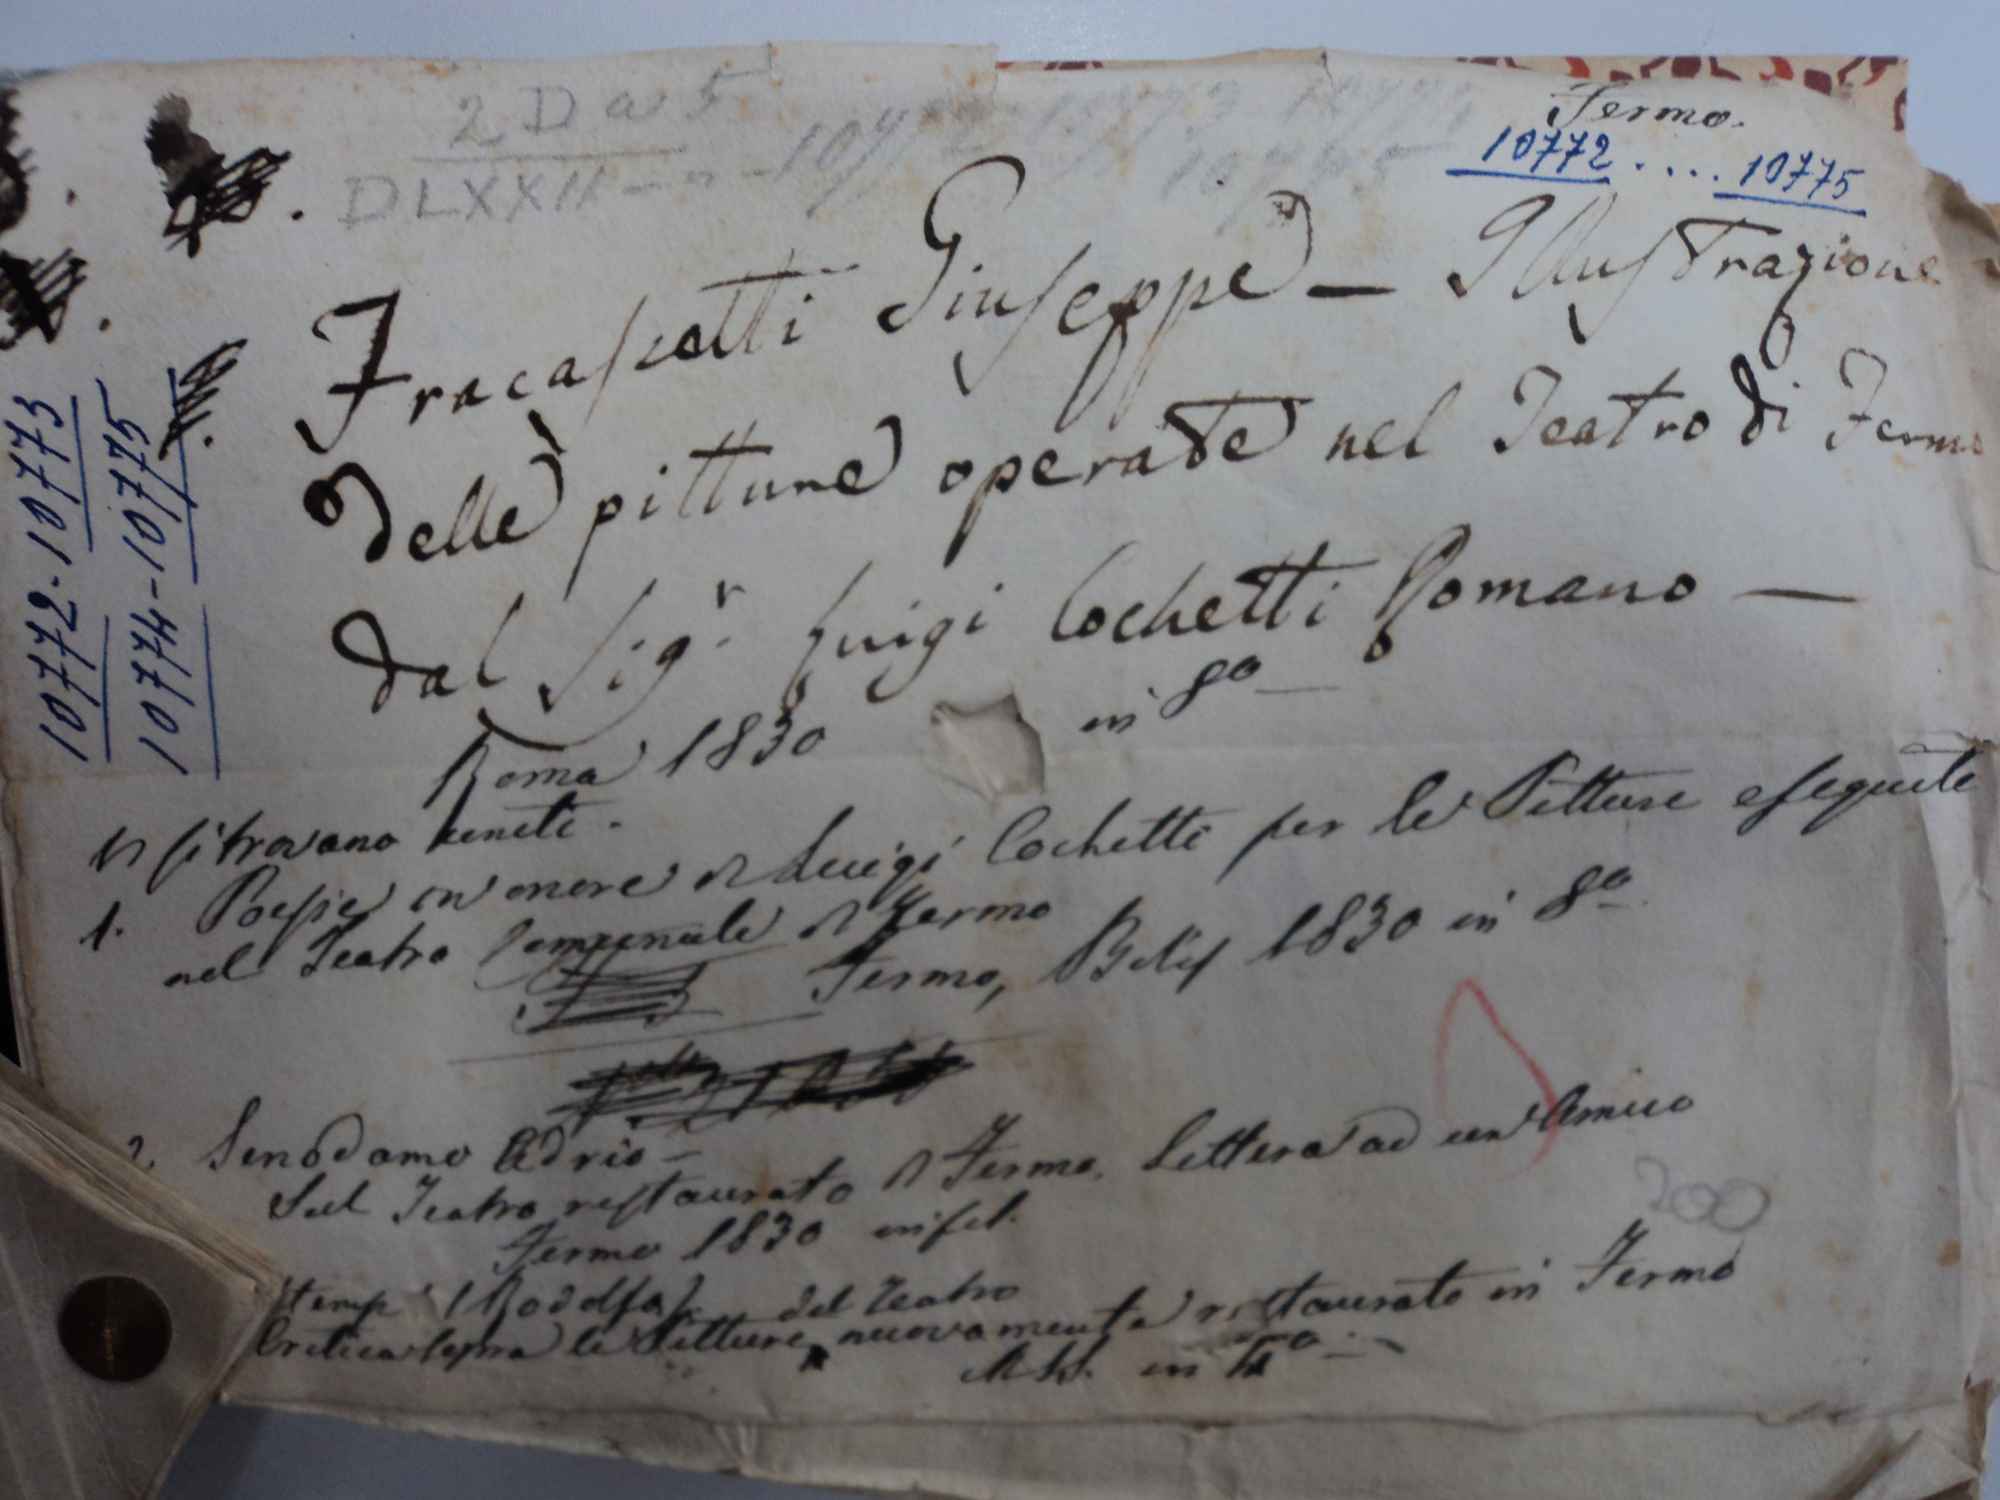 Fermo.
10772 .... 10775
2 D a 5
DLXXII
10772 - 10773
10774 - 10775
Fracassetti Giuseppe — Illustrazione
delle pitture operate nel Teatro di Fermo
dal Sig.r Luigi Cochetti Romano —
Roma 1830 in 8° —
Vi si trovano unite.
1. Poesie in onore di Luigi Cochetti per le Pitture eseguite
nel Teatro Comunale di Fermo
Fermo, 1830 in 8°
2. Senodamo Adrio —
Sul Teatro restaurato di Fermo. Lettera ad un Amico
Fermo 1830 in fol.
200
del Teatro
Critica sopra le Pitture nuovamente restaurato in Fermo
in 4° —